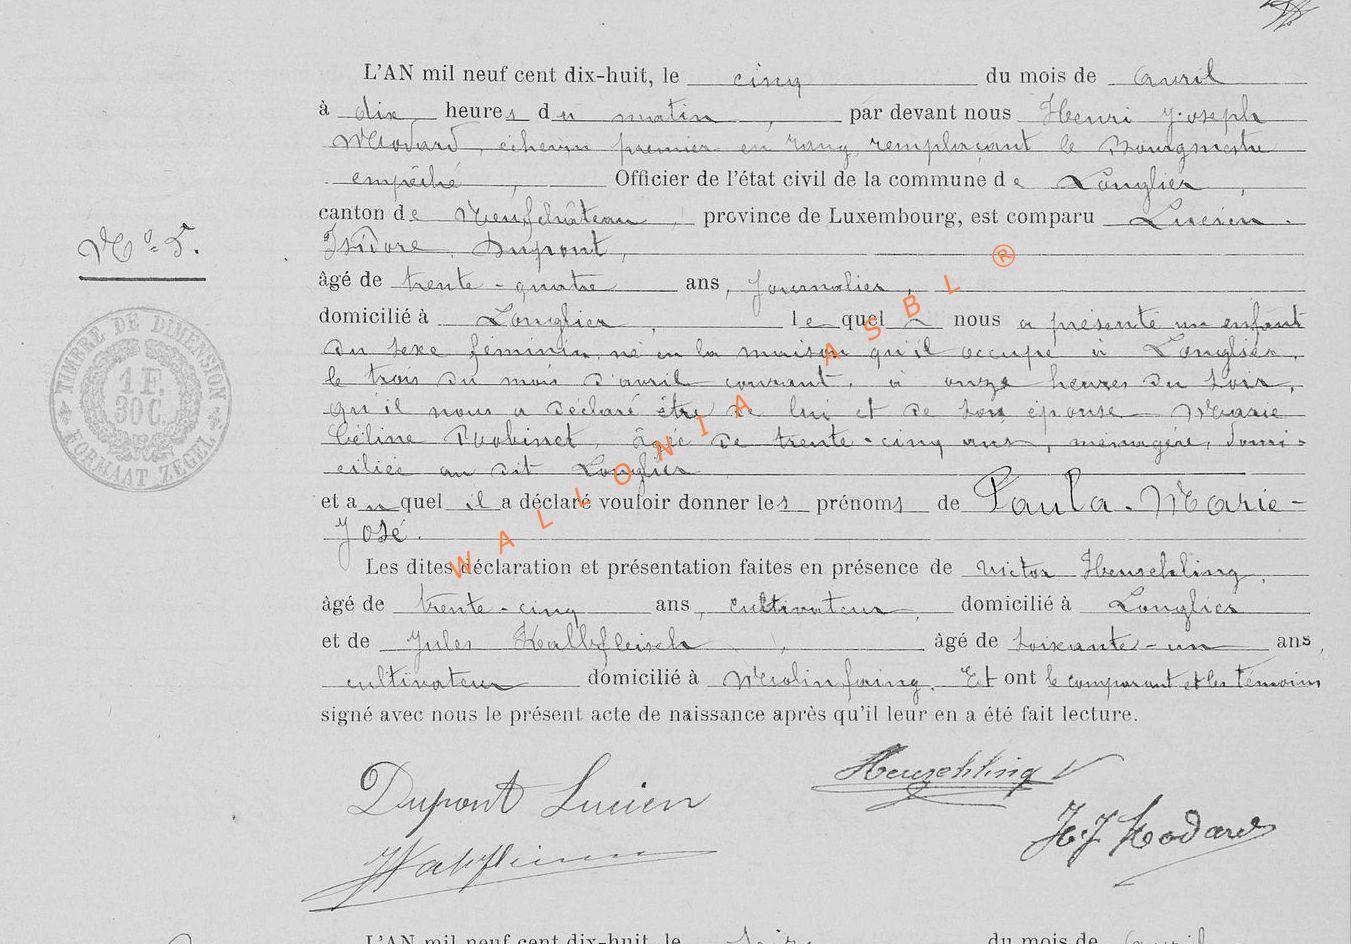 L'AN mil neuf cent dix-huit, le cinq du mois de avril
à dix heures du matin, par devant nous Henri Joseph
Modard, échevin premier en rang, remplaçant le Bourgmestre
empêché, Officier de l'état civil de la commune de Longlier,
canton de Neufchâteau, province de Luxembourg, est comparu Lucien
Isidore Dupont,
N° 5.
âgé de trente-quatre ans, journalier,
domicilié à Longlier, lequel nous a présenté un enfant
du sexe féminin, né en la maison qu'il occupe à Longlier,
le trois du mois d'avril courant, à onze heures du soir,
qu'il nous a déclaré être de lui et de son épouse Marie
Céline Robinet, âgée de trente-cinq ans, ménagère, domi-
ciliée au dit Longlier
et auquel il a déclaré vouloir donner les prénoms de Paula-Marie-
José.
Les dites déclaration et présentation faites en présence de Victor Heuschling,
âgé de trente-cinq ans, cultivateur, domicilié à Longlier
et de Jules Kalbfleisch, âgé de soixante-un ans,
cultivateur domicilié à Molinfaing. Et ont le comparant et les témoins
signé avec nous le présent acte de naissance après qu'il leur en a été fait lecture.
TIMBRE DE DIMENSION
1 F.
30 C.
FORMAAT ZEGEL
WALLONIA ASBL ®
Dupont Lucien
Heuschling V
H.J. Modard
L'AN mil neuf cent dix-huit, le du mois de avril